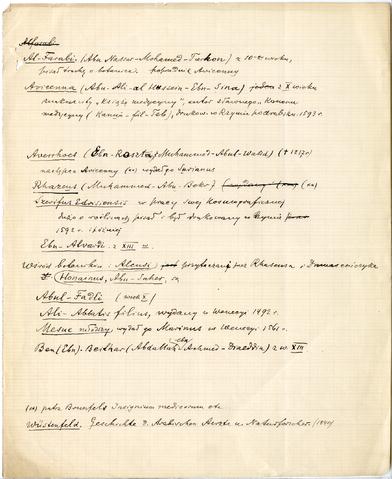 Al-Farabi (Abu Nassr-Mohamed-Tarkan) z 10-go wieku,
pisał trochę o botanice. poprzednik Avicenny
Avicenna (Abu-Ali-al Hussein-Ebn-Sina) z X wieku
"książę medycyny", autor sławnego Kanonu
medycyny (Kanun-fil-Teb), drukow. w Rzymie po arabsku 1593 r.
Averrhoes (Ebn-Roszta) Muhammed-Abul-Walid) († 1217)
następca Avicenny (xx) wydał go Turianus
Rhazeus (Muhammed-Abu-Bekr) (xx)
Szerifus Edrissensis w pracy swej Kosmograficznej
dużo o roślinach pisał i był drukowany w Rzymie
1592 r. i później
Ebn-Alvardi z XIII w.
Wśród botaników: Alcensi przytoczony przez Rhazeusa i Damasceńczyka
Honainus, Abu-Taher,
Abul-Fadli (wiek X)
Ali-Abbatis filius, wydany w Wenecyi 1492 r.
Mesue młodszy, wydał go Marinus w Wenecyi 1561 r.
Ben (Ebn)-Beithar (Abdallah Achmed-Dhiaeddin) z w. XIII
(xx) patrz Brunfels Insignium medicorum etc
Wüstenfeld. Geschichte d. Arabischen Aerzte u. Naturforscher. (1840)